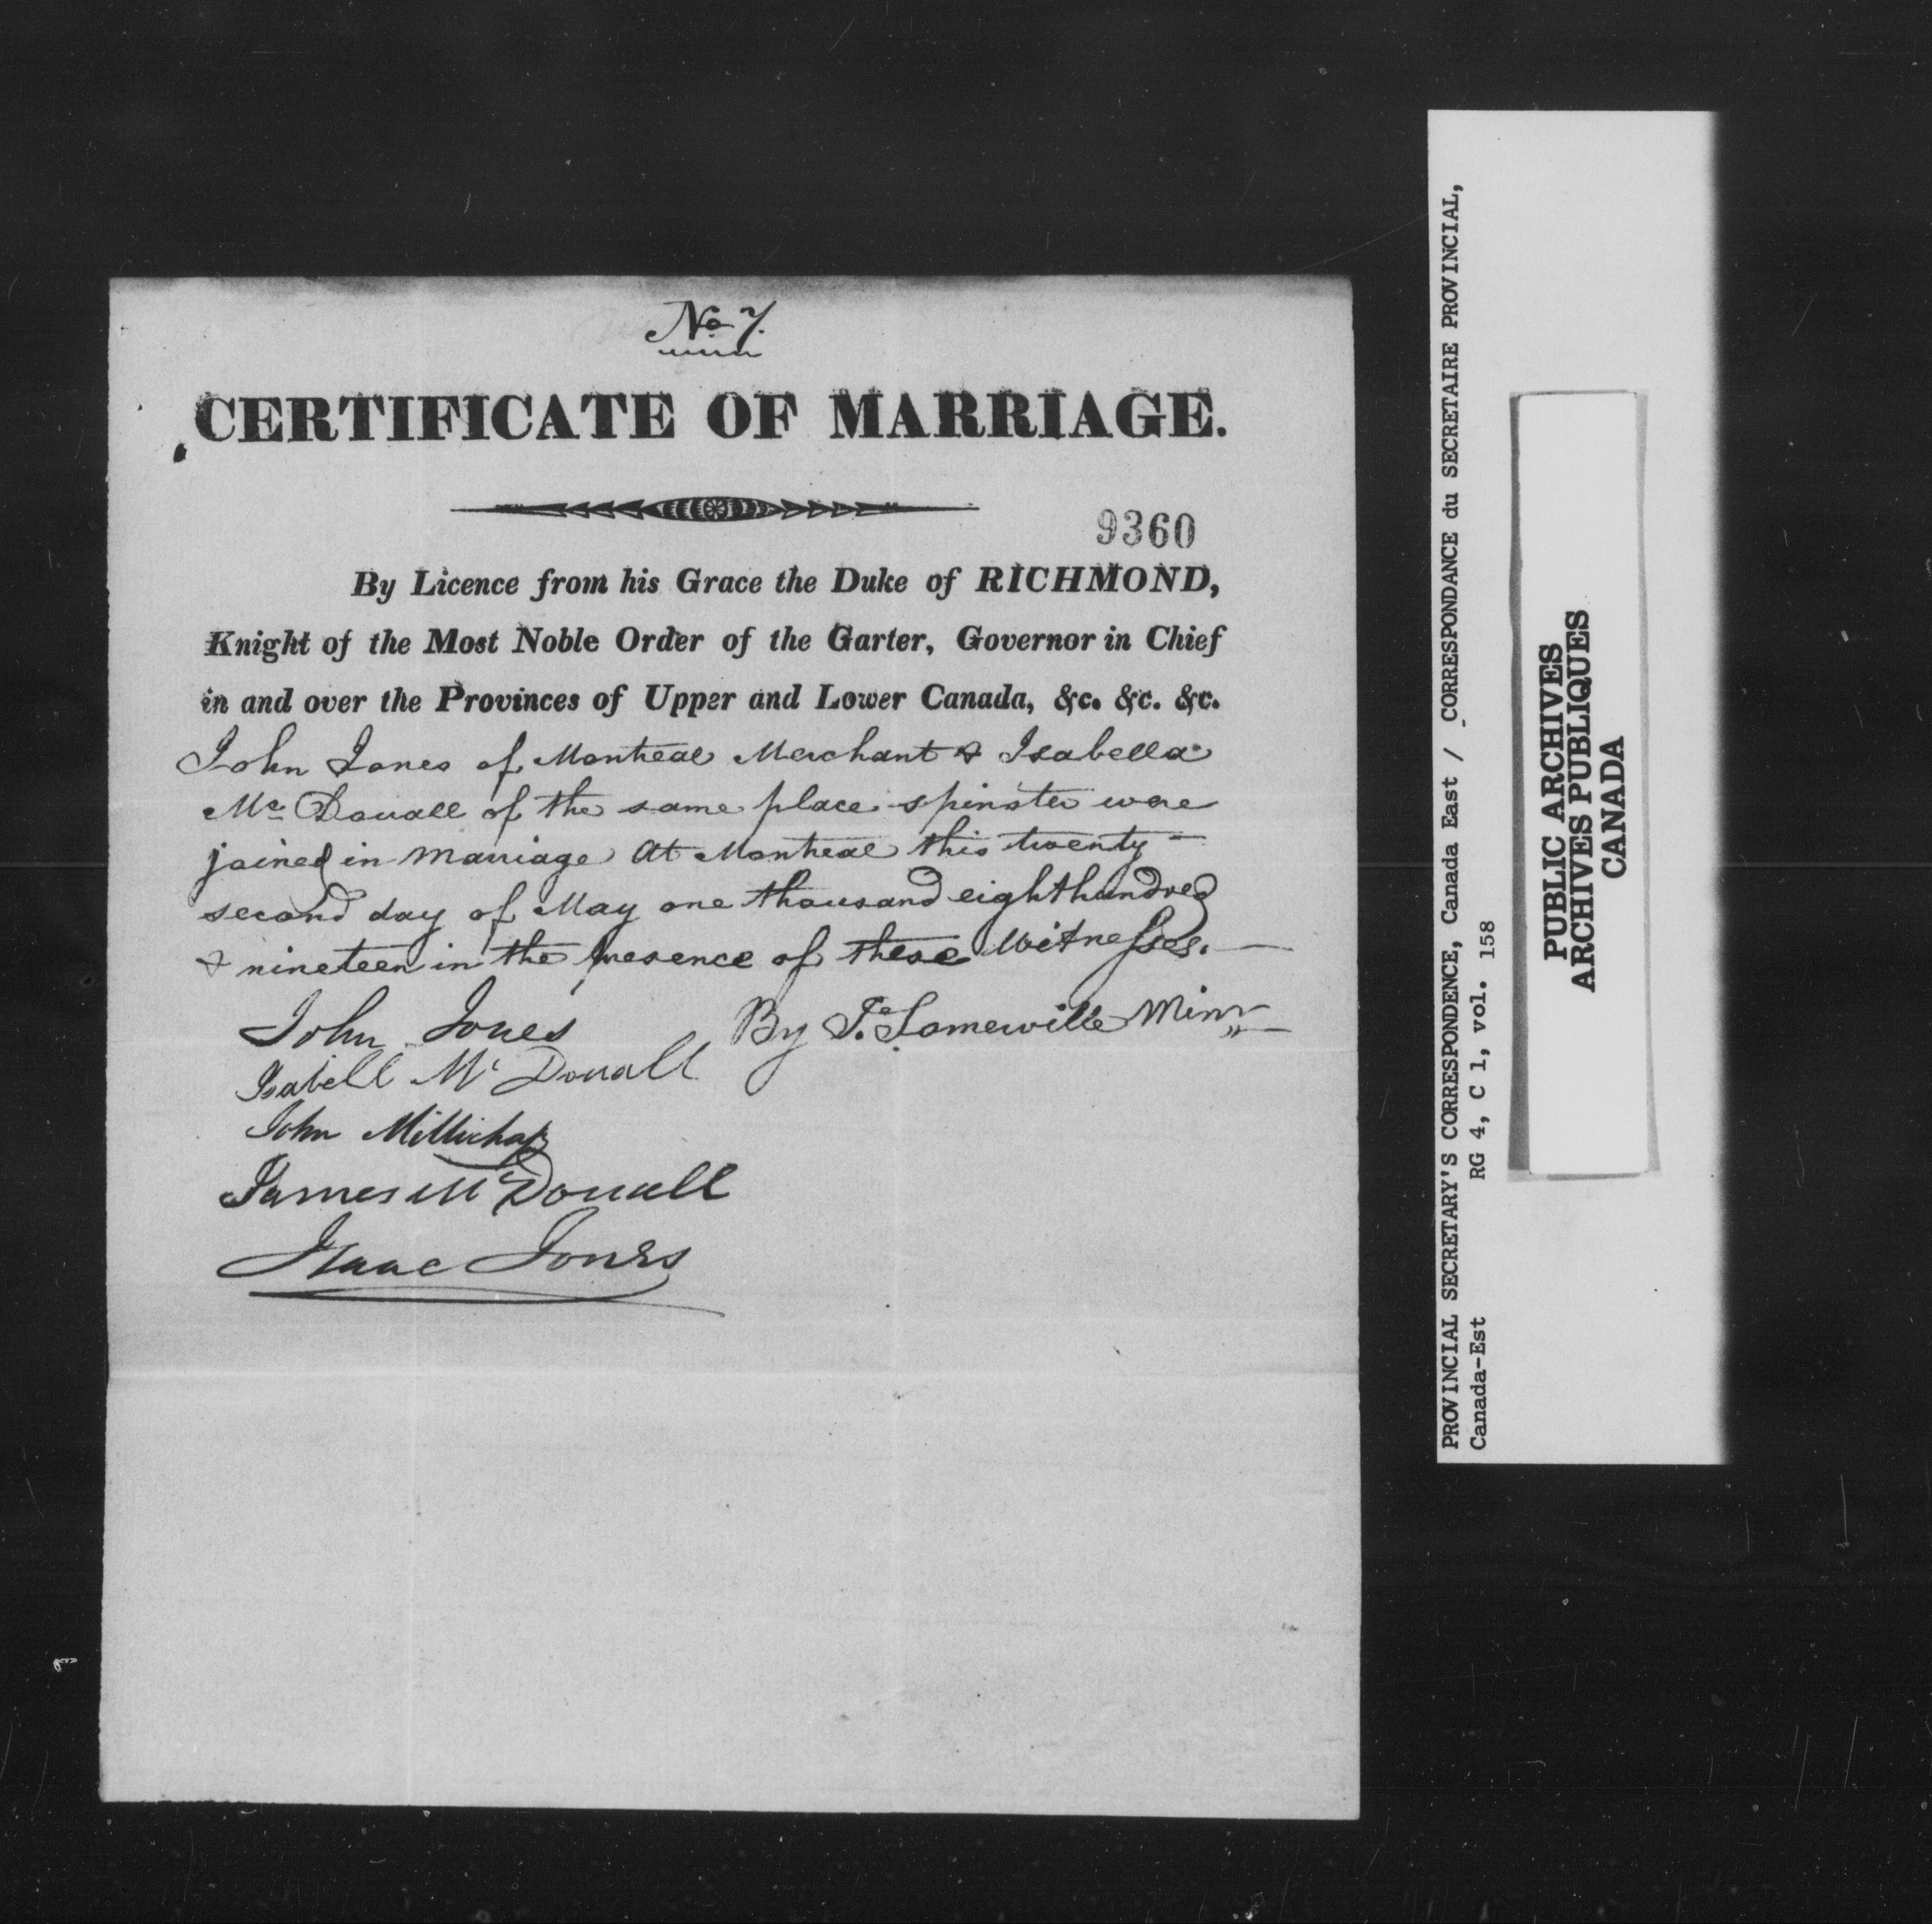 No 7.
CERTIFICATE OF MARRIAGE.
9360
By Licence from his Grace the Duke of RICHMOND,
Knight of the Most Noble Order of the Garter, Governor in Chief
in and over the Provinces of Upper and Lower Canada, &c. &c. &c.
John Jones of Montreal Merchant & Isabella
Mc Douall of the same place spinster were
joined in marriage At Montreal this twenty
second day of May one thousand eighthundred
& nineteen in the presence of these Witnesses.
By J. Somerville Minr
John Jones
Isabell Mc Douall
John Millichap
James Mc Douall
Isaac Jones
PROVINCIAL SECRETARY'S CORRESPONDENCE, Canada East / CORRESPONDANCE du SECRETAIRE PROVINCIAL,
Canada-Est RG 4, C 1, vol. 158
PUBLIC ARCHIVES
ARCHIVES PUBLIQUES
CANADA